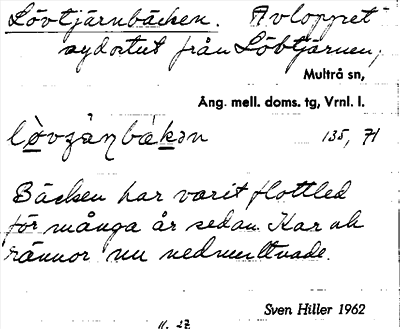 Lövtjärnbäcken. Avloppet
sydostut från Lövtjärnen,
Multrå sn,
Ång. mell. doms. tg, Vrnl. l.
135, 71
Bäcken har varit flottled
för många år sedan. Kar ok
rännor nu nedmultnade.
Sven Hiller 1962